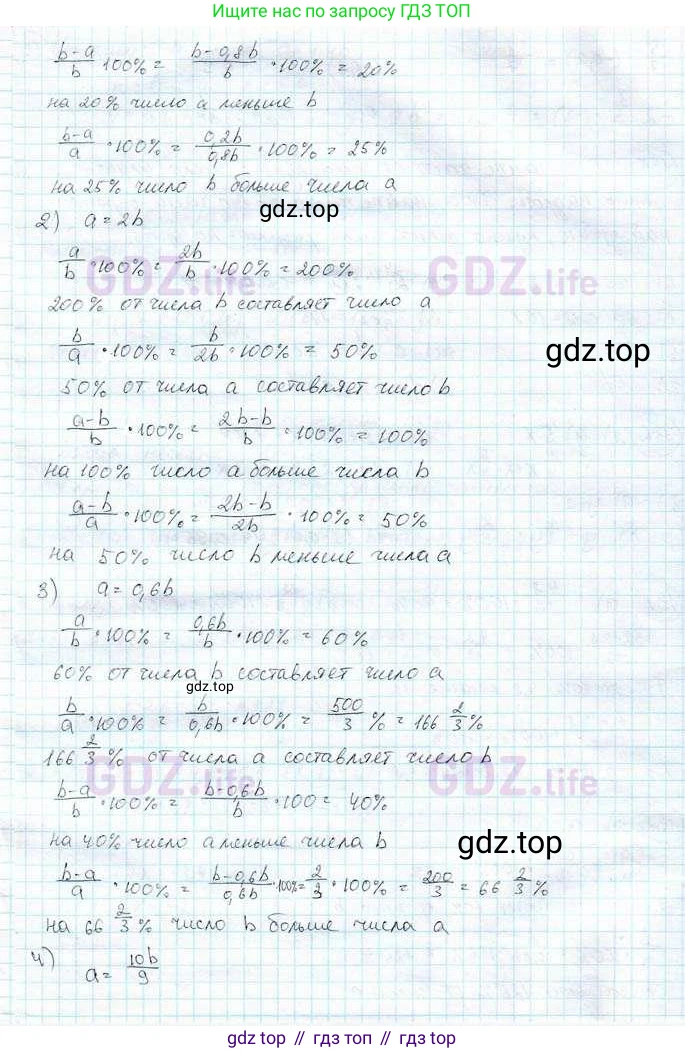 Ищите нас по запросу ГДЗ ТОП
(b-a)/b 100% = (b-0,8b)/b · 100% = 20%
на 20% число a меньше b
(b-a)/a · 100% = 0,2b/0,8b · 100% = 25%
на 25% число b больше числа a
gdz.top
2) a = 2b
a/b · 100% = 2b/b · 100% = 200%
GDZ.life GDZ.life
200% от числа b составляет число a
b/a · 100% = b/2b · 100% = 50%
gdz.top
50% от числа a составляет число b
(a-b)/b · 100% = (2b-b)/b · 100% = 100%
на 100% число a больше числа b
(a-b)/a · 100% = (2b-b)/2b · 100% = 50%
на 50% число b меньше числа a
3) a = 0,6b
a/b · 100% = 0,6b/b · 100% = 60%
60% от числа b составляет число a
gdz.top
b/a · 100% = b/0,6b · 100% = 500/3 % = 166 2/3 %
166 2/3 % от числа a составляет число b
GDZ.life GDZ.life
(b-a)/b · 100% = (b-0,6b)/b · 100 = 40%
на 40% число a меньше числа b
gdz.top
(b-a)/a · 100% = (b-0,6b)/0,6b · 100% = 2/3 · 100% = 200/3 = 66 2/3 %
на 66 2/3 % число b больше числа a
4) a = 10b/9
gdz.top // гдз топ // гдз.топ